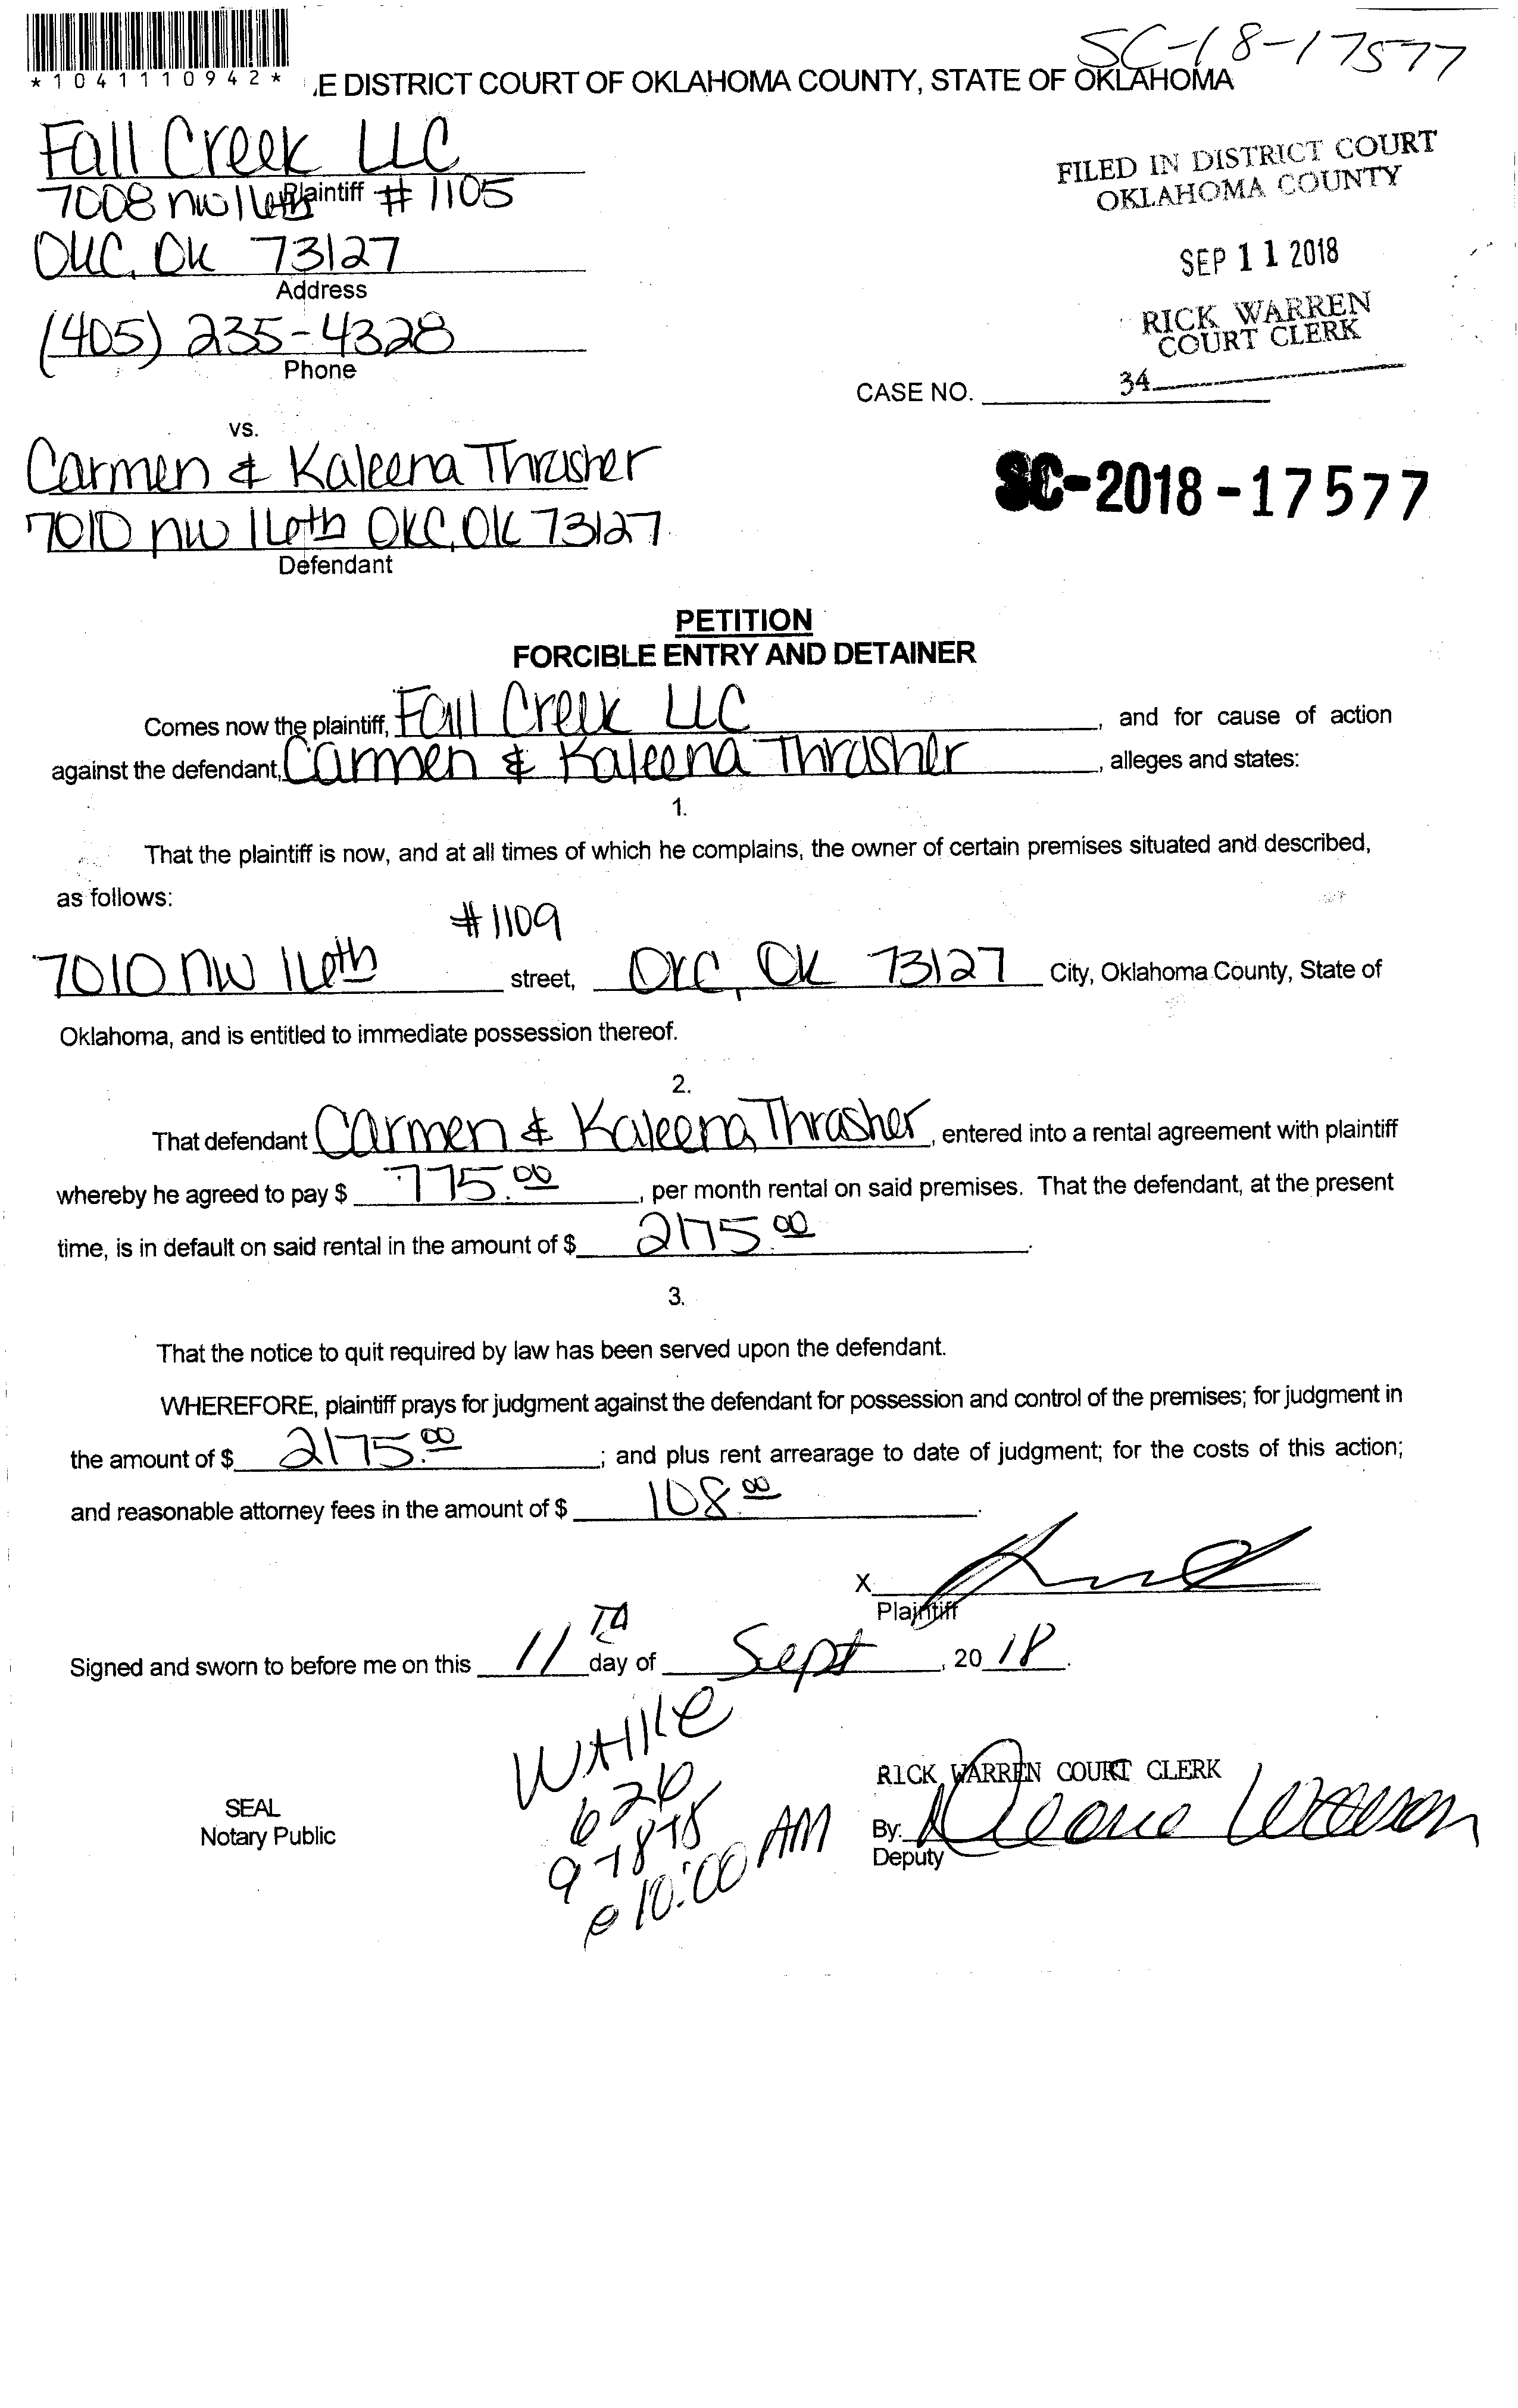 SC-18-17577
*1041110942*
E DISTRICT COURT OF OKLAHOMA COUNTY, STATE OF OKLAHOMA
Fall Creek LLC
7008 NW 16th Plaintiff # 1105
OKC, OK 73127
Address
(405) 235-4328
Phone
FILED IN DISTRICT COURT
OKLAHOMA COUNTY
SEP 11 2018
RICK WARREN
COURT CLERK
34
CASE NO.
vs.
Carmen & Kaleena Thrasher
7010 NW 16th OKC, OK 73127
Defendant
SC-2018-17577
PETITION
FORCIBLE ENTRY AND DETAINER
Comes now the plaintiff, Fall Creek LLC, and for cause of action
against the defendant, Carmen & Kaleena Thrasher, alleges and states:
1.
That the plaintiff is now, and at all times of which he complains, the owner of certain premises situated and described,
as follows:
#1109
7010 NW 16th street, OKC, OK 73127 City, Oklahoma County, State of
Oklahoma, and is entitled to immediate possession thereof.
2.
That defendant Carmen & Kaleena Thrasher, entered into a rental agreement with plaintiff
whereby he agreed to pay $ 775.00, per month rental on said premises. That the defendant, at the present
time, is in default on said rental in the amount of $ 2175.00.
3.
That the notice to quit required by law has been served upon the defendant.
WHEREFORE, plaintiff prays for judgment against the defendant for possession and control of the premises; for judgment in
the amount of $ 2175.00; and plus rent arrearage to date of judgment; for the costs of this action;
and reasonable attorney fees in the amount of $ 108.00.
X
Plaintiff
Signed and sworn to before me on this 11TH day of Sept, 2018.
RICK WARREN COURT CLERK
SEAL
Notary Public
By:
Deputy
626
@ 10:00 AM